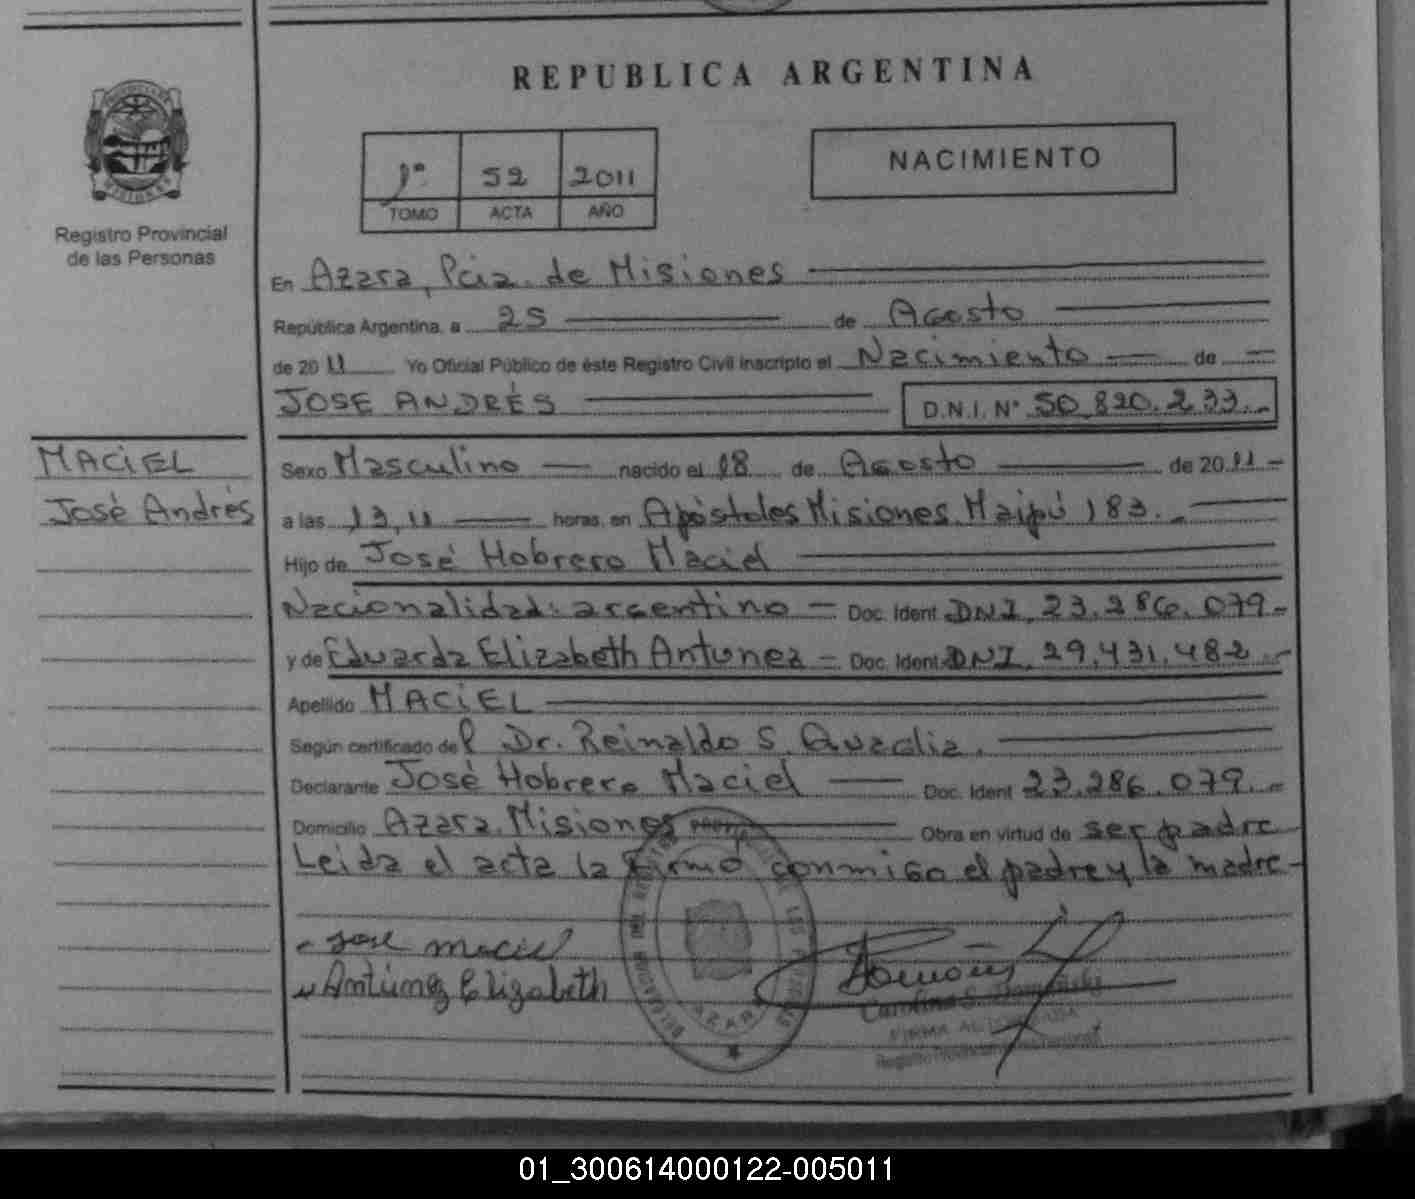 REPUBLICA ARGENTINA
1º 52 2011
TOMO ACTA AÑO
NACIMIENTO
Registro Provincial
de las Personas
En Azara, Pcia. de Misiones
República Argentina, a 25 de Agosto
de 2011 Yo Oficial Público de éste Registro Civil inscripto el Nacimiento de
JOSE ANDRÉS D.N.I. Nº 50.820.233.-
MACIEL
José Andrés
Sexo Masculino nacido el 18 de Agosto de 2011-
a las 13,11 horas, en Apóstoles Misiones. Maipú 183.-
Hijo de José Hobrero Maciel
Nacionalidad: argentino - Doc. Ident. DNI. 23.286.079-
y de Eduarda Elizabeth Antunez - Doc. Ident. DNI. 29.431.482.-
Apellido MACIEL
Según certificado del Dr. Reinaldo S.
Declarante José Hobrero Maciel Doc. Ident 23.286.079.-
Domicilio Azara. Misiones Obra en virtud de ser padre
Leida el acta la firmó conmigo el padre y la madre-
Jose Maciel
Antúnez Elizabeth
AZARA
Carolina S.
FIRMA AUTORIZADA
Registro Provincial de las Personas
01_300614000122-005011